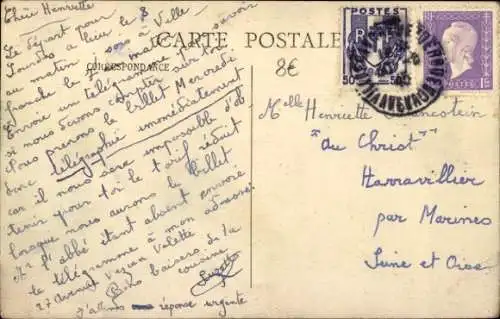 Chère Henriette
Le départ pour
Lourdes a lieu le 8
au matin sois à Ville
franche le 7 au matin savoir
Envoie un télégramme
si nous devons compter sur toi
Nous prenons le billet Mercredi
donc télégraphie immédiatement
car il nous sera impossible d'ob
tenir pour toi le tarif réduit
lorsque nous aurons le billet
Mr l'abbé étant absent envoie
le télégramme à mon adresse
27 Avenue Valette
Bons baisers de la
cousine
Suzette
J'attends réponse urgente
CARTE POSTALE
CORRESPONDANCE
8€
POSTES
RF
50 50
Melle Henriette
"du Christ"
Harravillier
par Marines
Seine et Oise